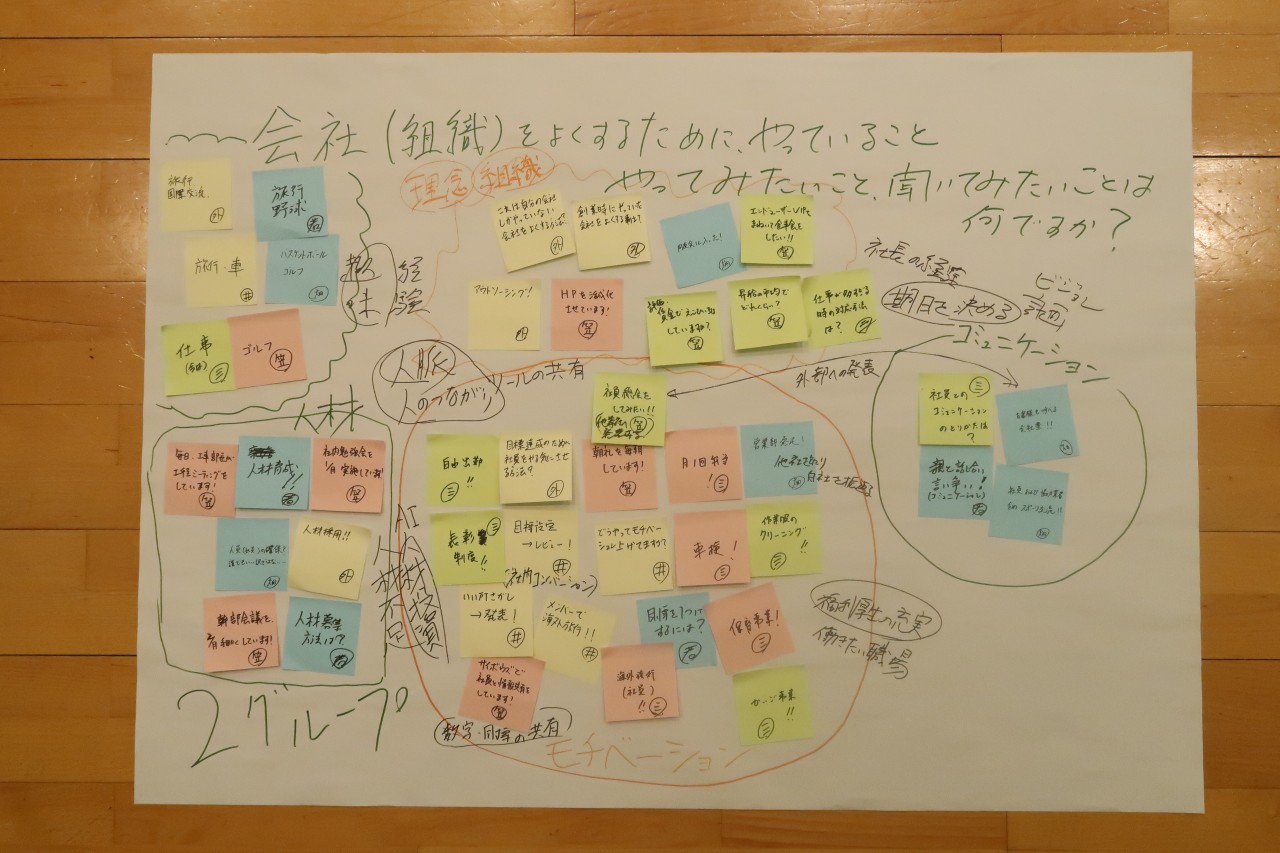 会社(組織)をよくするために、やっていること
やってみたいこと、聞いてみたいことは
何ですか?
旅行
国際交流
外
旅行
野球
旅行・車
井
バスケットボール
ゴルフ
仕事
三
ゴルフ
笠
趣味
経験
理念 組織
これは自分の会社
しかやっていない
会社をよくする方法?
外
創業時にやっていた
会社をよくする
外
エンドユーザーVIPを
まねいて食事会を
したい!!
笠
アウトソーシング!
HPを活性化
させています!
笠
していますか?
笠
昇給の平均で
どれくらい?
笠
仕事が
時の対処方法
は?
社長の経営
期日を決める
ビジョン
計画
人脈
人のつながり
ツールの共有
外部への発表
コミュニケーション
社員との
コミュニケーション
のとりかたは?
三
会社祭!!
親と話し合い
言い争い!
(コミュニケーション)
スポーツ交流!!
人材
毎日、工事部長が
工程ミーティングを
しています!
笠
人材育成!!
社内勉強会を
1/月 実施しています!
笠
人材採用!!
外
幹部会議を、
しています!
笠
人材募集
方法は?
AI
人材投資
人材不足
社員総会を
してみたい!!
笠
自由出勤
!!
三
目標達成のため
社員をやる気にさせ
る方法?
外
朝礼を毎朝
しています!
笠
月1回
!
三
営業部発足!
他社を知り
自社を
表彰
制度!!
三
目標設定
→レビュー!
井
どうやってモチベー
ション上げてますか?
井
車検!
三
作業服の
クリーニング!!
三
(社内コンバーション)
いい所さがし
→発表!
井
メンバーで
海外旅行!!
井
目標を1つに
するには?
保育事業!
三
サイボウズで
社員と情報共有を
しています!
笠
海外旅行
(社員)
!!
三
事業
!!
三
数字・目標の共有
モチベーション
福利厚生の充実
働きたい職場
2グループ